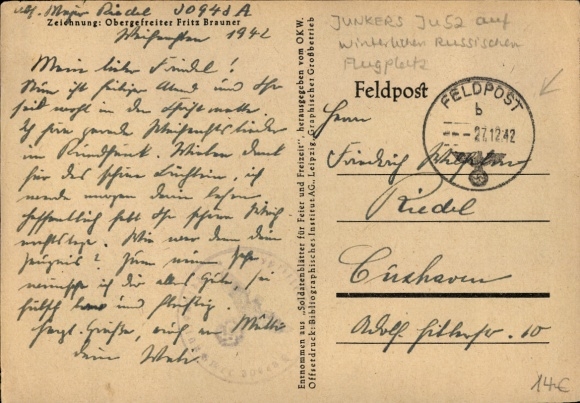 Abs. Major Riedel 30943 A
Zeichnung: Obergefreiter Fritz Brauner
Weihnachten 1942
Mein lieber Friedel!
Nun ist heiliger Abend und Ihr
seid wohl in der Christmette.
Ich höre gerade Weihnachtslieder
im Rundfunk. Vielen Dank
für das schöne Büchlein, ich
werde morgen darin lesen.
Hoffentlich habt Ihr schöne Weih
nachtstage. Wie war denn dein
Zeugnis? Zum neuen Jahr
wünsche ich dir alles Gute, sei
hübsch brav und fleißig.
Herzl. Grüße, auch an Mutti
dein Vati.
Entnommen aus „Soldatenblätter für Feier und Freizeit“, herausgegeben vom OKW.
Offsetdruck: Bibliographisches Institut AG., Leipzig, Graphischer Großbetrieb
JUNKERS Ju52 auf
winterlichen Russischen
Flugplatz
Feldpost
FELDPOST
b
27.12.42
Herrn
Friedrich Wilhelm
Riedel
Cuxhaven
Adolf Hitlerstr. 10
14€